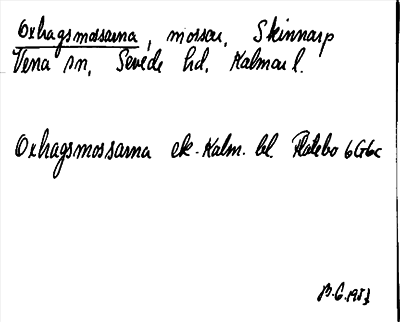 Oxhagsmossarna, mossar, Skinnarp
Vena sn, Sevede hd, Kalmar l.
Oxhagsmossarna ek. Kalm. bl. Flatebo 6G6c
B.G. 1983